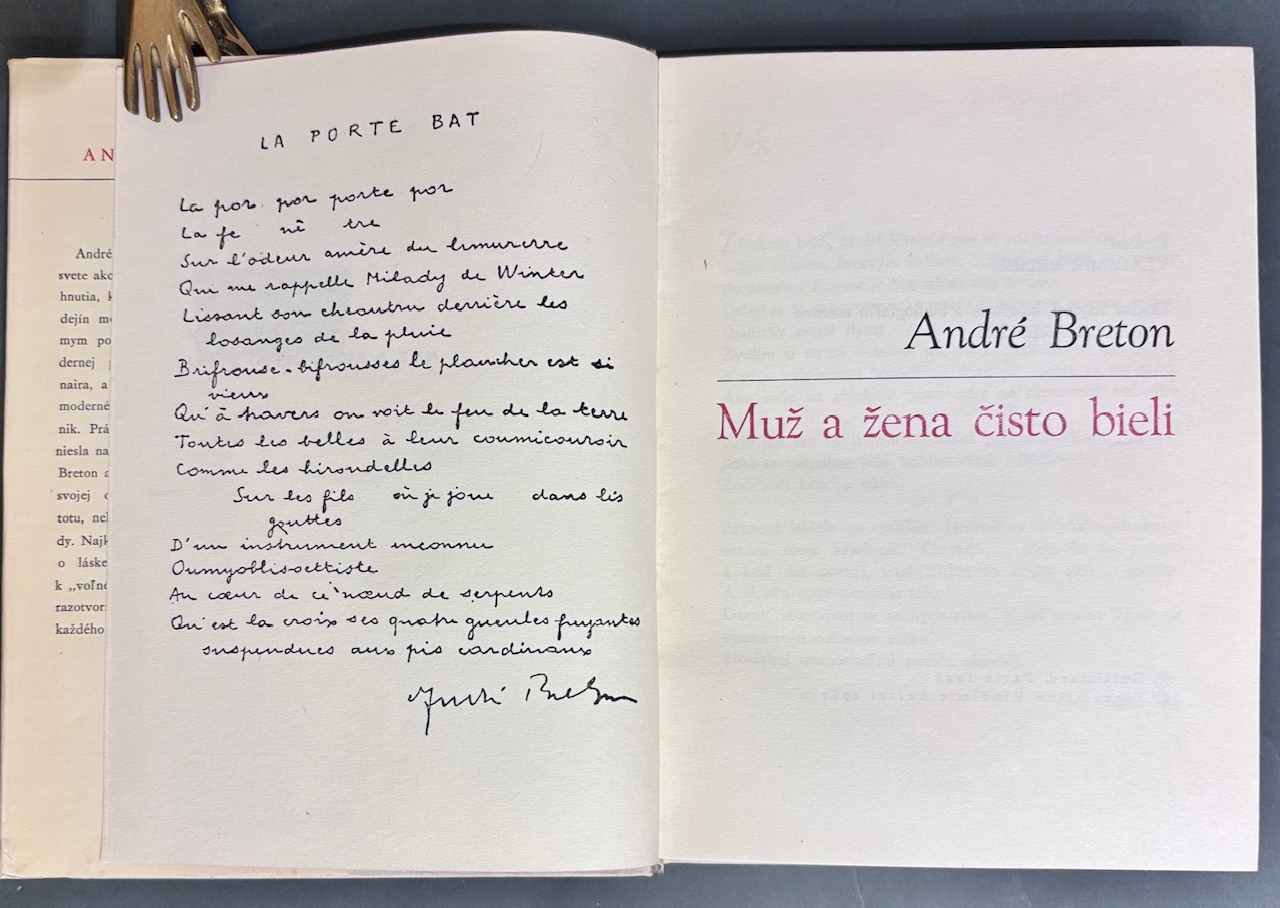 AN
André
svete ako
hnutia, k
dejín mo
mym po
dernej
naira, a
moderné
nik. Prá
niesla na
Breton a
svojej
totu, nel
dy. Najk
o láske
k „voľne
razotvor
každého
LA PORTE BAT
La por por porte por
La fe nê tre
Sur l'odeur amère du limurerre
Qui me rappelle Milady de Winter
Lissant son cheautru derrière les
losanges de la pluie
Brifrouse-bifrousses le plancher est si
vieux
Qu'à travers on voit le feu de la terre
Toutes les belles à leur coumicouroir
Comme les hirondelles
Sur les fils où je joue dans les
gouttes
D'un instrument inconnu
Oumyoblisoettiste
Au cœur de ce nœud de serpents
Qu'est la croix ses quatre gueules fuyantes
suspendues aux pis cardinaux
André Breton
André Breton
Muž a žena čisto bieli